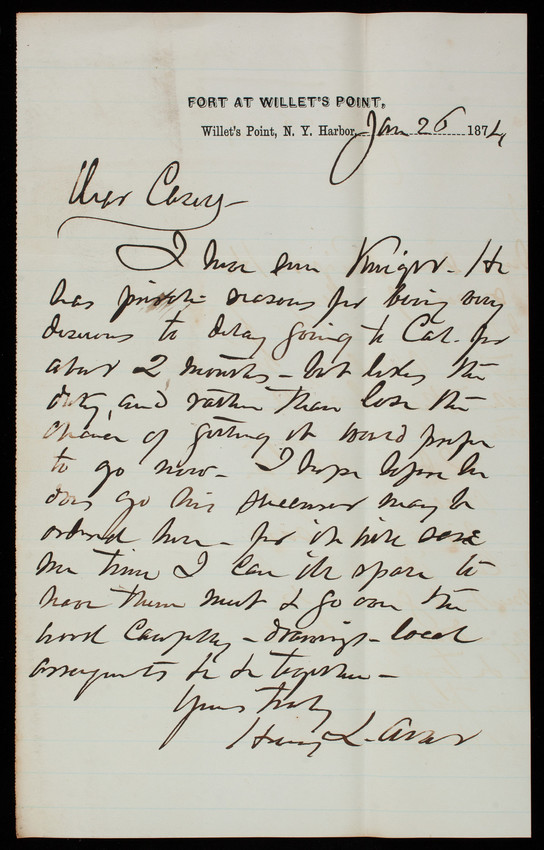 FORT AT WILLET'S POINT,
Willet's Point, N. Y. Harbor, Jan 26 1874
Dear Casey -
I have seen Knight - He
has private reasons for being very
desirous to delay going to Cal. for
about 2 months - but likes the
duty, and rather than lose the
chance of getting it would prefer
to go now - I hope before he
does go his successor may be
ordered here - for it will save
me time I can ill spare to
have them meet & go over the
work - drawings - local
arrangements &c &c together -
Yours truly
Henry L. Abbot